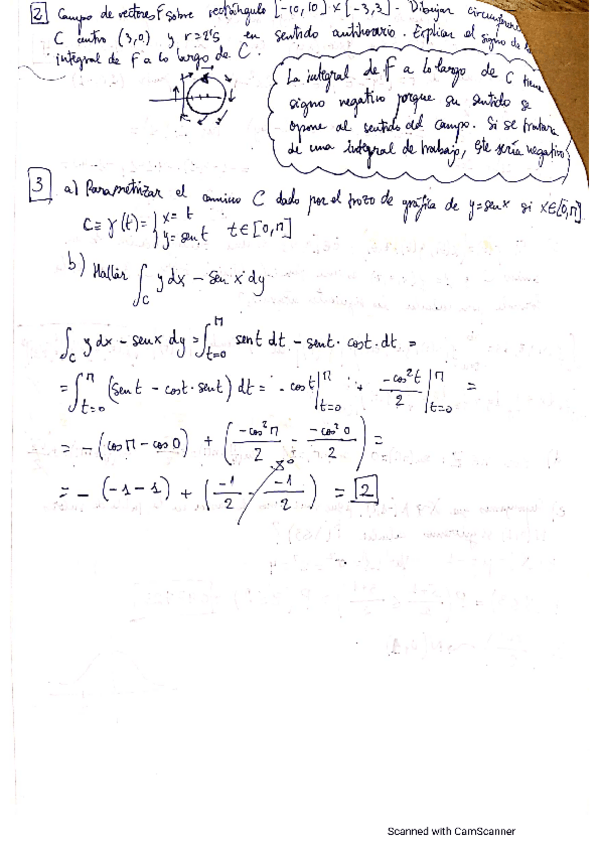 2 Campo de vectores F sobre rectángulo [-10,10] x [-3,3]. Dibujar
C centro (3,0) y r=2'5 en sentido antihorario. Explicar el signo de la
integral de F a lo largo de C.
La integral de F a lo largo de C tiene
signo negativo porque su sentido se
opone al sentido del campo. Si se tratara
de una integral de trabajo, este sería negativo
3 a) Parametrizar el camino C dado por el trozo de gráfica de y=senx si x∈[0,π]
C≡γ(t)={x=t y=sent t∈[0,π]
b) Hallar ∫_C ydx - senx dy
∫_C ydx - senx dy = ∫_{t=0}^{π} sent dt - sent·cost·dt =
= ∫_{t=0}^{π} (sent - cost·sent) dt = -cost|_{t=0}^{π} + -cos²t/2|_{t=0}^{π} =
= -(cosπ - cos0) + (-cos²π/2 - -cos²0/2) =
= -(-1-1) + (-1/2 - -1/2) = 2
Scanned with CamScanner